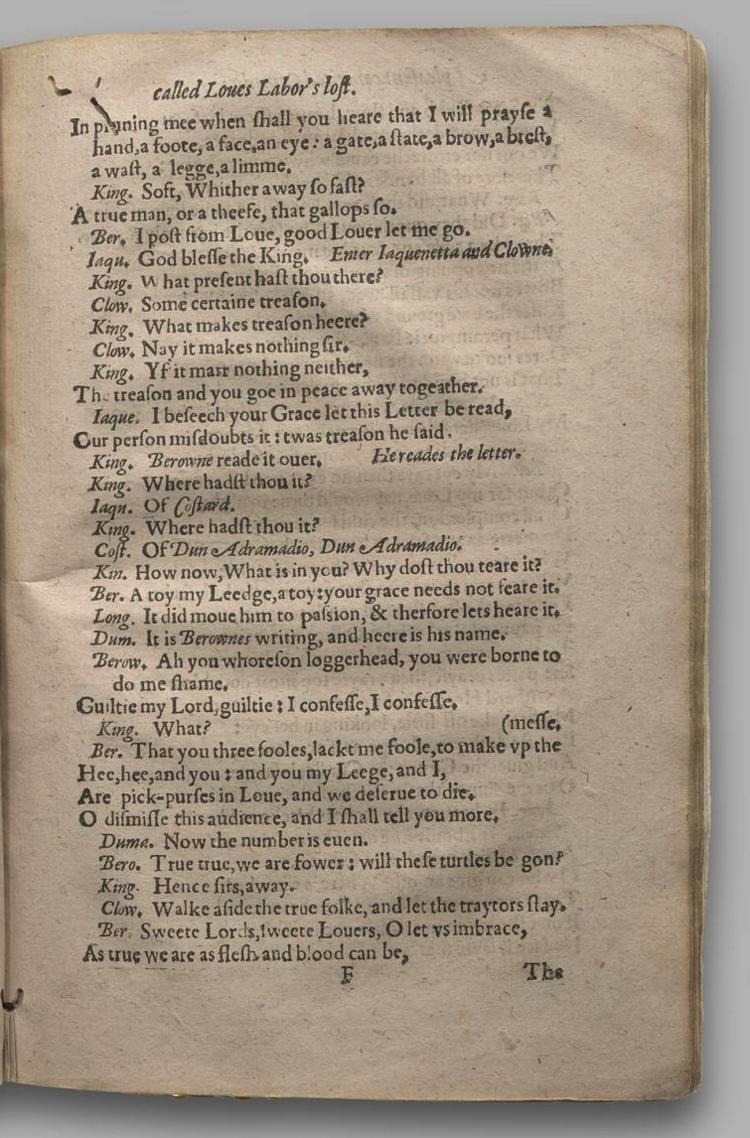 called Loues Labor's lost.
In pruning mee when shall you heare that I will prayse a
hand, a foote, a face, an eye: a gate, a state, a brow, a brest,
a wast, a legge, a limme.
King. Soft, Whither away so fast?
A true man, or a theefe, that gallops so.
Ber. I post from Loue, good Louer let me go.
Iaqu. God blesse the King. Enter Iaquenetta and Clowne.
King. What present hast thou there?
Clow. Some certaine treason.
King. What makes treason heere?
Clow. Nay it makes nothing sir.
King. Yf it marr nothing neither,
The treason and you goe in peace away togeather.
Iaque. I beseech your Grace let this Letter be read,
Our person misdoubts it: twas treason he said.
King. Berowne reade it ouer. He reades the letter.
King. Where hadst thou it?
Iaqu. Of Costard.
King. Where hadst thou it?
Cost. Of Dun Adramadio, Dun Adramadio.
Kin. How now, What is in you? Why dost thou teare it?
Ber. A toy my Leedge, a toy: your grace needs not feare it.
Long. It did moue him to passion, & therfore lets heare it.
Dum. It is Berownes writing, and heere is his name.
Berow. Ah you whoreson loggerhead, you were borne to
do me shame.
Guiltie my Lord, guiltie: I confesse, I confesse.
King. What? (messe.
Ber. That you three fooles, lackt me foole, to make vp the
Hee, hee, and you: and you my Leege, and I,
Are pick-purses in Loue, and we deserue to die.
O dismisse this audience, and I shall tell you more.
Duma. Now the number is euen.
Bero. True true, we are fower: will these turtles be gon?
King. Hence sirs, away.
Clow. Walke aside the true folke, and let the traytors stay.
Ber. Sweete Lords, sweete Louers, O let vs imbrace,
As true we are as flesh and blood can be,
F The